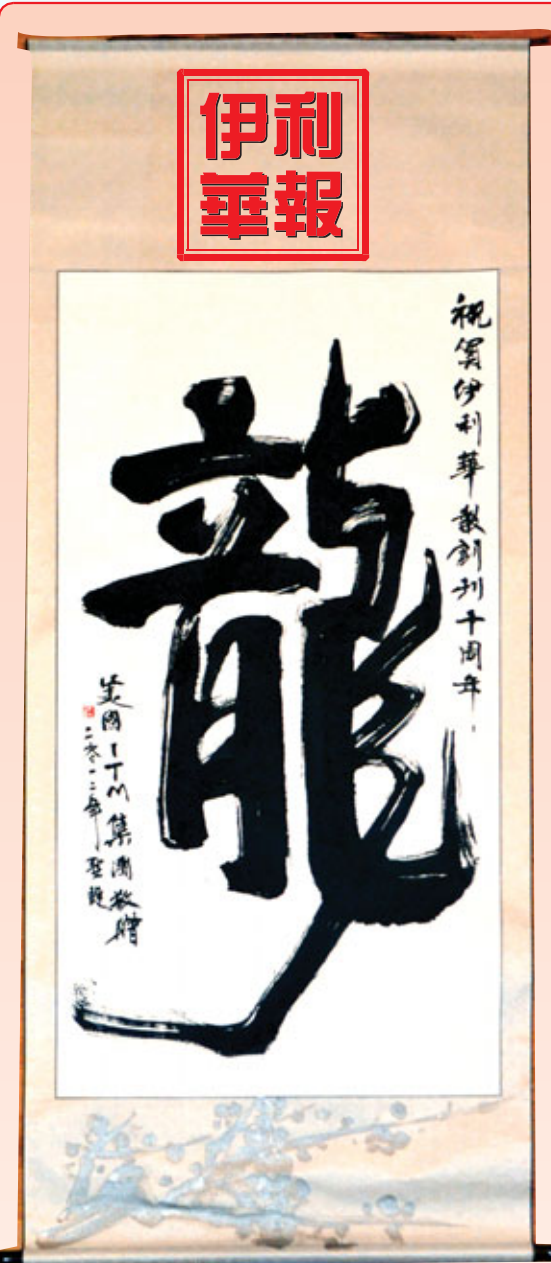 伊利
華報
祝賀伊利華報創刊十周年
龍
美國ITM集團敬贈
二零一二年